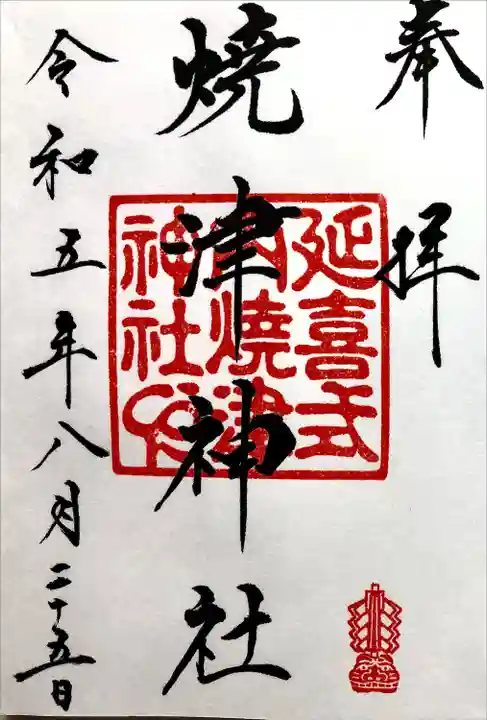 奉拝
焼津神社
令和五年八月二十五日
延喜式
内焼津
神社印